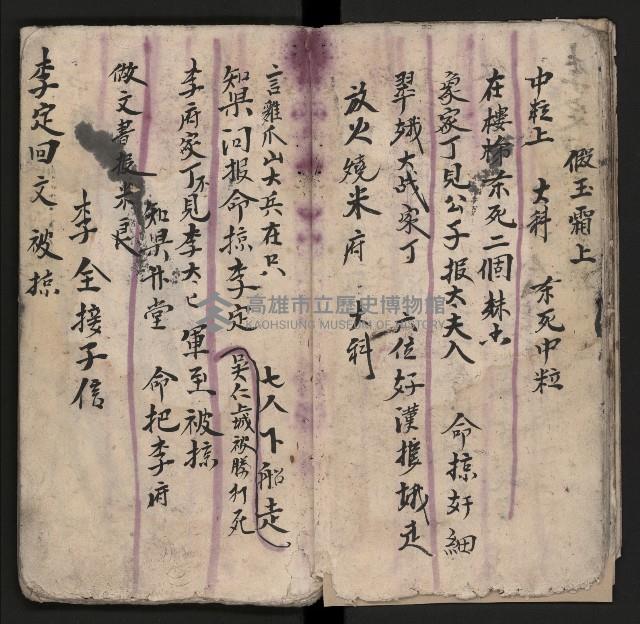 假玉霜上
中粒上　大科　杀死中粒
在樓梯杀死二個
象家丁見公子报太夫入　命掠奸細
翠娥大战家丁　位好漢搉娥走
放火燒米府　大科
言雞爪山大兵在只　七人下船走
知県问报命掠李定　吳仁上城被勝打死
李府家丁不見李太匕　軍至被掠
做文書报米良　知県升堂　命把李府
李全接子信
李定回文被掠
高雄市立歷史博物館
KAOHSIUNG MUSEUM OF HISTORY